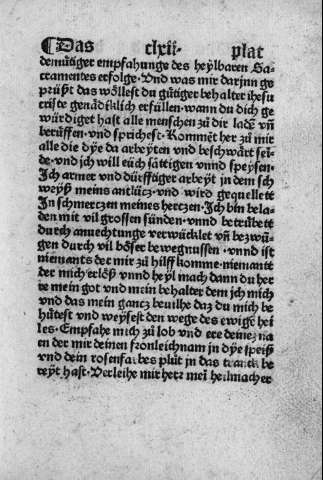 ¶Das clxii· plat
demütiger empfahunge des heylbaren Sa-
cramentes erfolge· Und was mir darjnn ge
prüßt das wöllest du gütiger behalter ihesu
criste genädiklich erfüllen· wann du dich ge
würdiget hast alle menschen zů dir ladē vñ
berüffen· vnd sprichest· Kommēt her zů mir
alle die dye da arbeyten vnd beschwärt seīd-
de· vnd ich will euch sättigen vnnd speysen·
Ich armer vnd dürfftiger arbeyt in dem sch
weyß meins antlücz· vnd wird gequellett
In schmerczen meines herczen· Ich bin bela-
den mit vil grossen sünden· vnnd betrübett
durch anuechtunge verwücklet vñ bezwū-
gen durch vil böser bewegnussen· vnnd ist
niemants der mir zů hilff komme· niemantt
der mich erlöß vnnd heyl mach dann du her
re mein got vnd mein behalter dem ich mich
vnd das mein gancz beuilhe daz du mich be
hütest vnd weysest den wege des ewigē hei
les· Empfahe mich zů lob vnd ere deinez na
en der mir deinen fronleichnam in dye speiß
vnd dein rosenfarbes plůt in das tranck be
reyt hast· Verleihe mir herr meī heilmacher